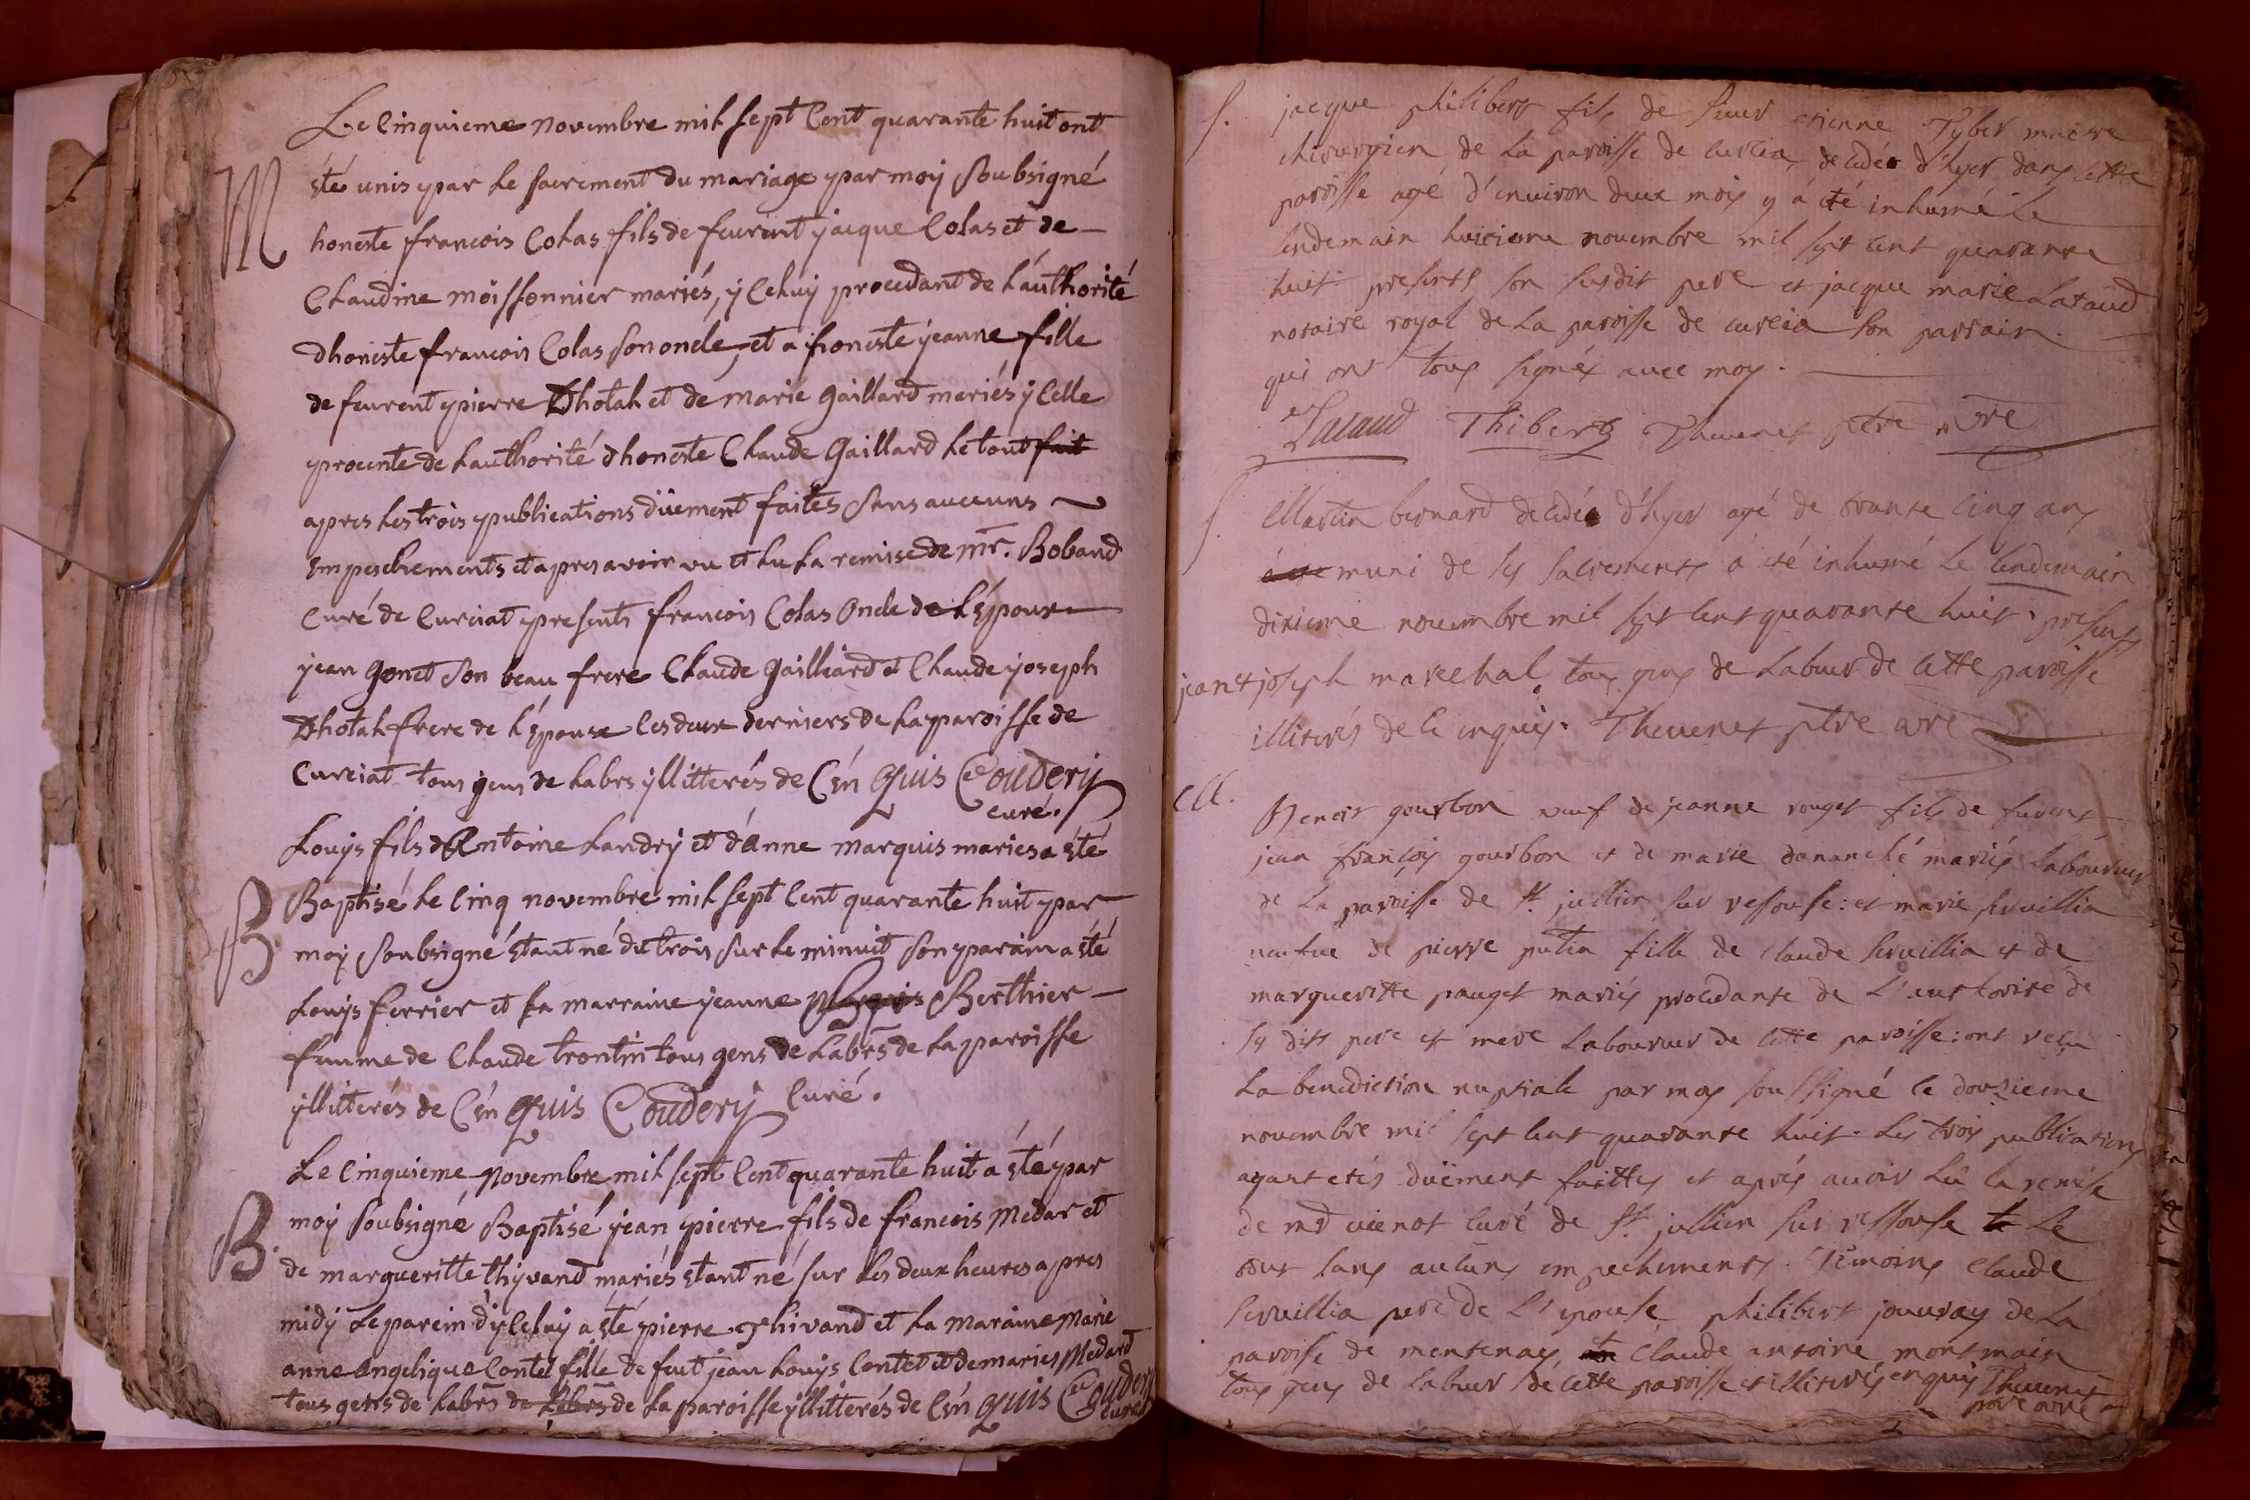 Le cinquieme novembre mil sept cent quarante huit ont
M
été unis par le sacrement du mariage par moy soubsigné
honeste francois Colas fils de feurent jacque Colas et de
Claudine moissonnier mariés, yceluy procedant de l'authorité
dhoneste francois Colas son oncle, et a honeste jeanne fille
de feurent pierre Dholah et de marie gaillard mariés ycelle
procente de l'authorité dhoneste Claude gaillard le tout fait
apres les trois publications düement faites sans aucuns
empeschements et apres avoir vu et lu la remise de mr. Boband
curé de Curciat presents francois Colas oncle de l'époux
jean gonet son beau frere Claude gailliard et Claude joseph
Dholah frere de l'épouse les deux derniers de la paroisse de
Curciat tous gens de labrs yllitterés de ce enquis Coudery
curé.
Louys fils d'Antoine Landry et d'anne marquis mariés a été
B.
Baptisé le cinq novembre mil sept cent quarante huit par
moy soubsigné étant né du trois sur le minuit son parain a été
Louys ferrier et la marraine jeanne Berthier
femme de Claude trontin tous gens de labrs de la paroisse
yllitterés de ce enquis Coudery curé.
Le cinquieme novembre mil sept cent quarante huit a été par
B.
moy soubsigné Baptisé jean pierre fils de francois Medar et
de margueritte thyvand mariés étant né sur les deux heures apres
midy le parein d'yceluy a été pierre thivand et la maraine marie
anne angelique Contet fille de feut jean Louys Contet et de maries Medard
tous gens de labrs de labrs de la paroisse yllitterés de ce enquis Coudery
curé
S.
jacque philibert fils de sieur etienne Tyber maitre
chirurgien de la paroisse de curcia decedé d'hyer dans cette
paroisse agé d'environ deux mois y á eté inhumé le
lendemain huitieme novembre mil sept cent quarante
huit presents son susdit pere et jacque marie Lataud
notaire royal de la paroisse de curcia son parrain
qui ont tous signés avec moy.
Lataud Thibert Thevenet ptre vre
S.
Martin bernard decedé d'hyer agé de trante cinq ans
muni de ses sacrements á eté inhumé le lendemain
dixieme novembre mil sept cent quarante huit presents
jean et joseph marechal tous gens de labeur de cette paroisse
illiterés de ce enquis. Thevenet ptre vre
M.
Benoit gourbon veuf de jeanne rouget fils de furent
jean françois gourbon et de marie dananché mariés laboureurs
de la paroisse de st. jullien sur ressouse: et marie servillia
veufve de pierre putin fille de claude servillia et de
margueritte pauget mariés procedante de L'authorité de
ses dits pere et mere laboureur de cette paroisse: ont reçu
La benediction nuptiale par moy soussigné le douzieme
novembre mil sept cent quarante huit. Les trois publications
ayant etés düement faittes et après avoir lû la remise
de md vienot curé de st. jullien sur ressouse le
tout sans aucuns empechements. témoins claude
servillia pere de L'epouse philibert jouvray de la
paroisse de mentenay claude antoine montmain
tous gens de labeur de cette paroisse et illiterés enquis Thevenet
ptre vre